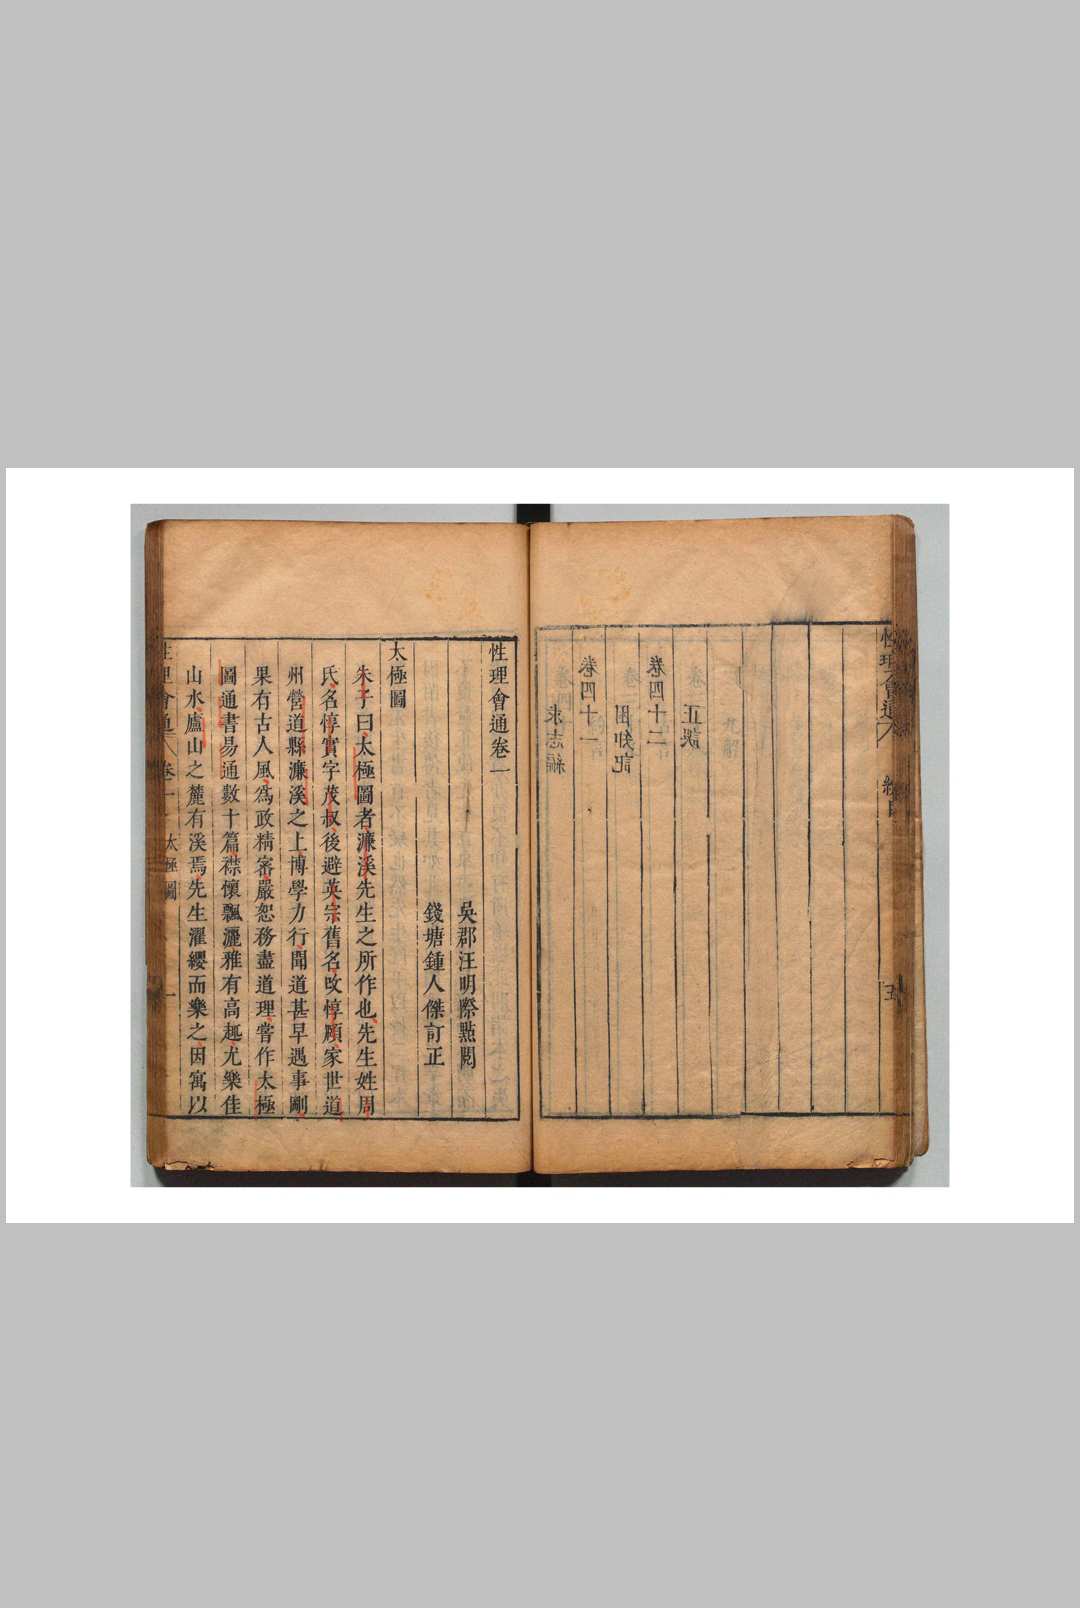 性理會通
總目
五
正誤
卷四十二
困知記
卷四十一
求志編
性理會通卷一
吳郡汪明際㸃閱
錢塘鍾人傑訂正
太極圖
朱子曰太極圖者濂溪先生之所作也先生姓周
氏名惇實字茂叔後避英宗舊名改惇頤家世道
州營道縣濂溪之上博學力行聞道甚早遇事剛
果有古人風為政精密嚴恕務盡道理嘗作太極
圖通書易通數十篇襟懷飄灑雅有高趣尤樂佳
山水廬山之麓有溪焉先生濯纓而樂之因寓以
性理會通
卷一
太極圖
一